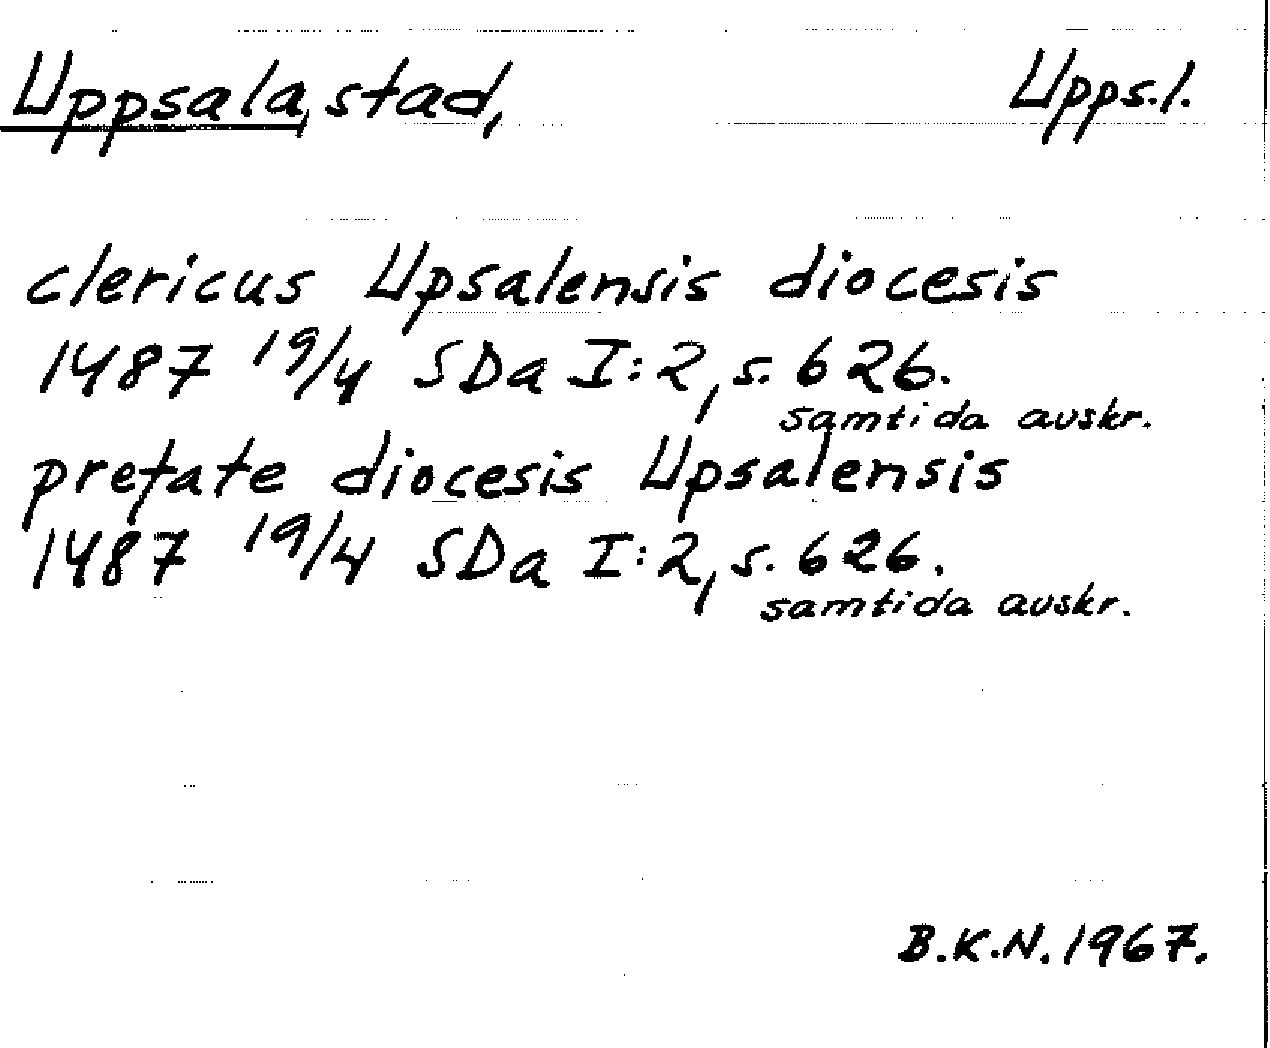 Uppsala, stad, Upps.l.
clericus Upsalensis diocesis
1487 19/4 SDa I:2, s. 626.
samtida avskr.
prefate diocesis Upsalensis
1487 19/4 SDa I:2, s. 626.
samtida avskr.
B.K.N. 1967.